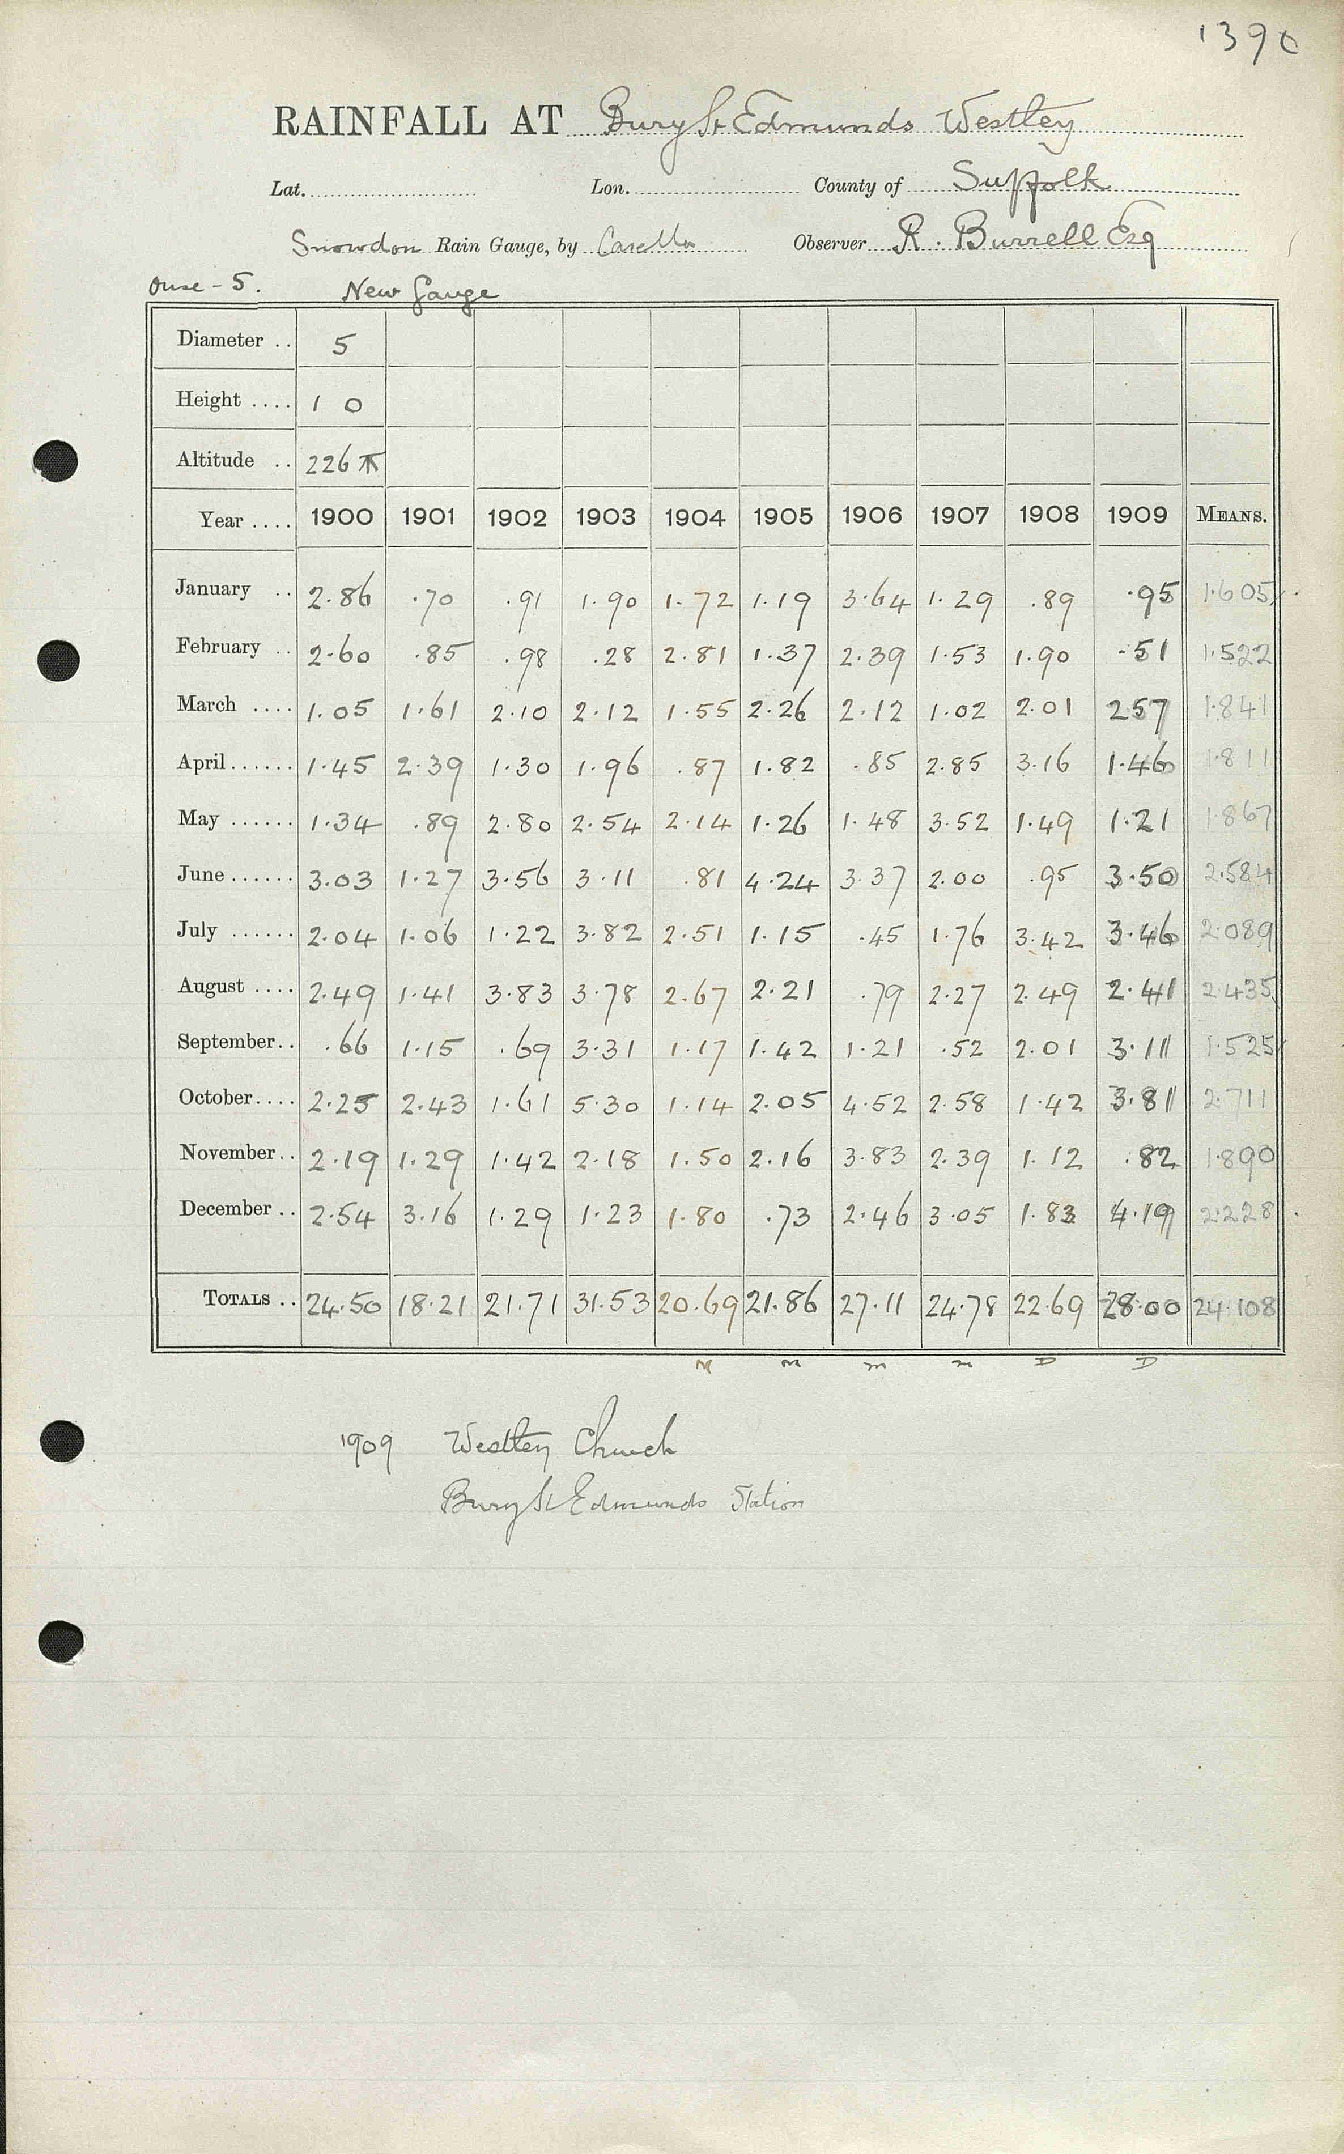 1390
RAINFALL AT Bury St Edmunds Westley
Lat. Lon. County of Suffolk
Snowdon Rain Gauge, by Casella Observer R. Burrell Esq
Ouse - 5. New Gauge
Diameter .. 5
Height .... 1 0
Altitude .. 226
Year .... 1900 1901 1902 1903 1904 1905 1906 1907 1908 1909 MEANS.
January .. 2.86 .70 .91 1.90 1.72 1.19 3.64 1.29 .89 .95 1.605
February .. 2.60 .85 .98 .28 2.81 1.37 2.39 1.53 1.90 .51 1.522
March .... 1.05 1.61 2.10 2.12 1.55 2.26 2.12 1.02 2.01 2.57 1.841
April ...... 1.45 2.39 1.30 1.96 .87 1.82 .85 2.85 3.16 1.46 1.811
May ...... 1.34 .89 2.80 2.54 2.14 1.26 1.48 3.52 1.49 1.21 1.867
June ...... 3.03 1.27 3.56 3.11 .81 4.24 3.37 2.00 .95 3.50 2.584
July ...... 2.04 1.06 1.22 3.82 2.51 1.15 .45 1.76 3.42 3.46 2.089
August .... 2.49 1.41 3.83 3.78 2.67 2.21 .79 2.27 2.49 2.41 2.435
September .. .66 1.15 .69 3.31 1.17 1.42 1.21 .52 2.01 3.11 1.525
October .... 2.25 2.43 1.61 5.30 1.14 2.05 4.52 2.58 1.42 3.81 2.711
November .. 2.19 1.29 1.42 2.18 1.50 2.16 3.83 2.39 1.12 .82 1.890
December .. 2.54 3.16 1.29 1.23 1.80 .73 2.46 3.05 1.83 4.19 2.228
TOTALS .. 24.50 18.21 21.71 31.53 20.69 21.86 27.11 24.78 22.69 28.00 24.108
M M M M D D
1909 Westley Church
Bury St Edmunds Station